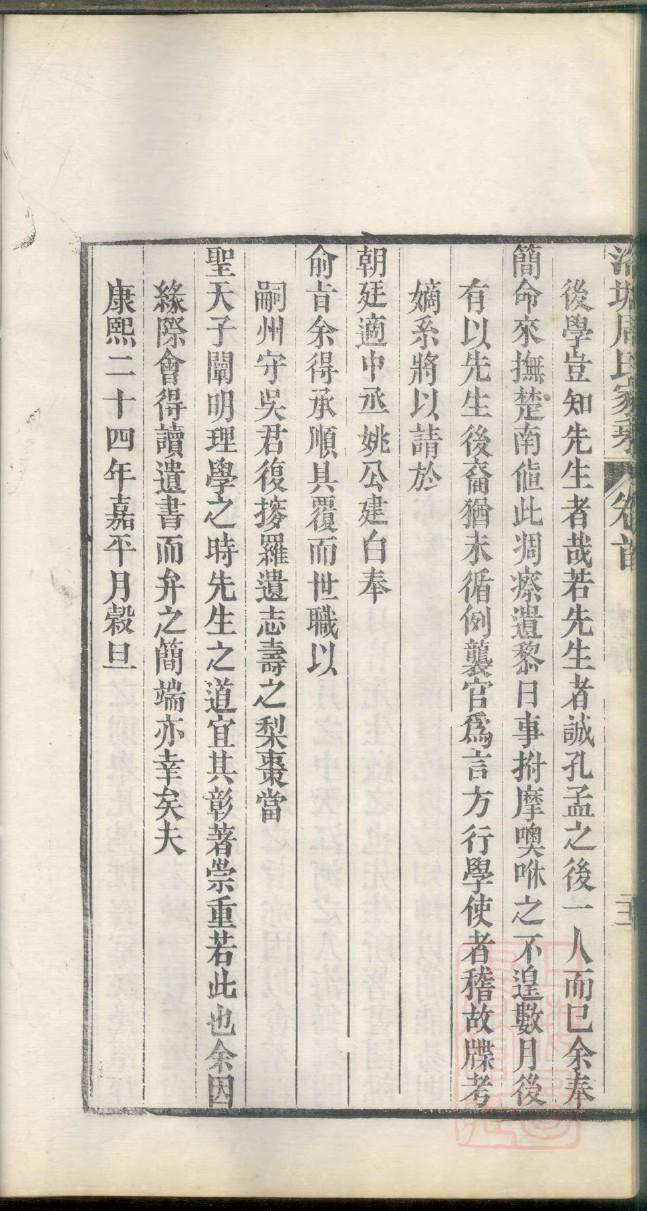 周氏家乘 卷首
後學豈知先生者哉若先生者誠孔孟之後一人而已余奉
簡命來撫楚南値此凋瘵遺黎日事拊摩噢咻之不遑數月後
有以先生後裔猶未循例襲官爲言方行學使者稽故牒考
嫡系將以請於
朝廷適中丞姚公建白奉
俞旨余得承順具覆而世職以
嗣州守吳君復搜羅遺志壽之梨棗當
聖天子闡明理學之時先生之道宜其彰著崇重若此也余因
緣際會得讀遺書而弁之簡端亦幸矣夫
康熙二十四年嘉平月穀旦